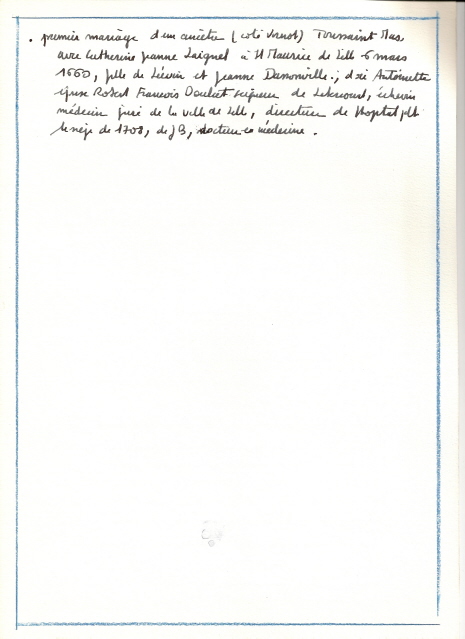 . premier mariage d'un ancêtre (coté Vrnot) Toussaint Mas
avec Catherine Jeanne Laignel à St Maurice de Lille 6 mars
1660, fille de Liévin et Jeanne ; d'où Antoinette
épouse Robert François seigneur de, échevin
médecin juré de la ville de Lille, directeur de l'hopital pdt
le siège de 1708, de JB, docteur en médecine.